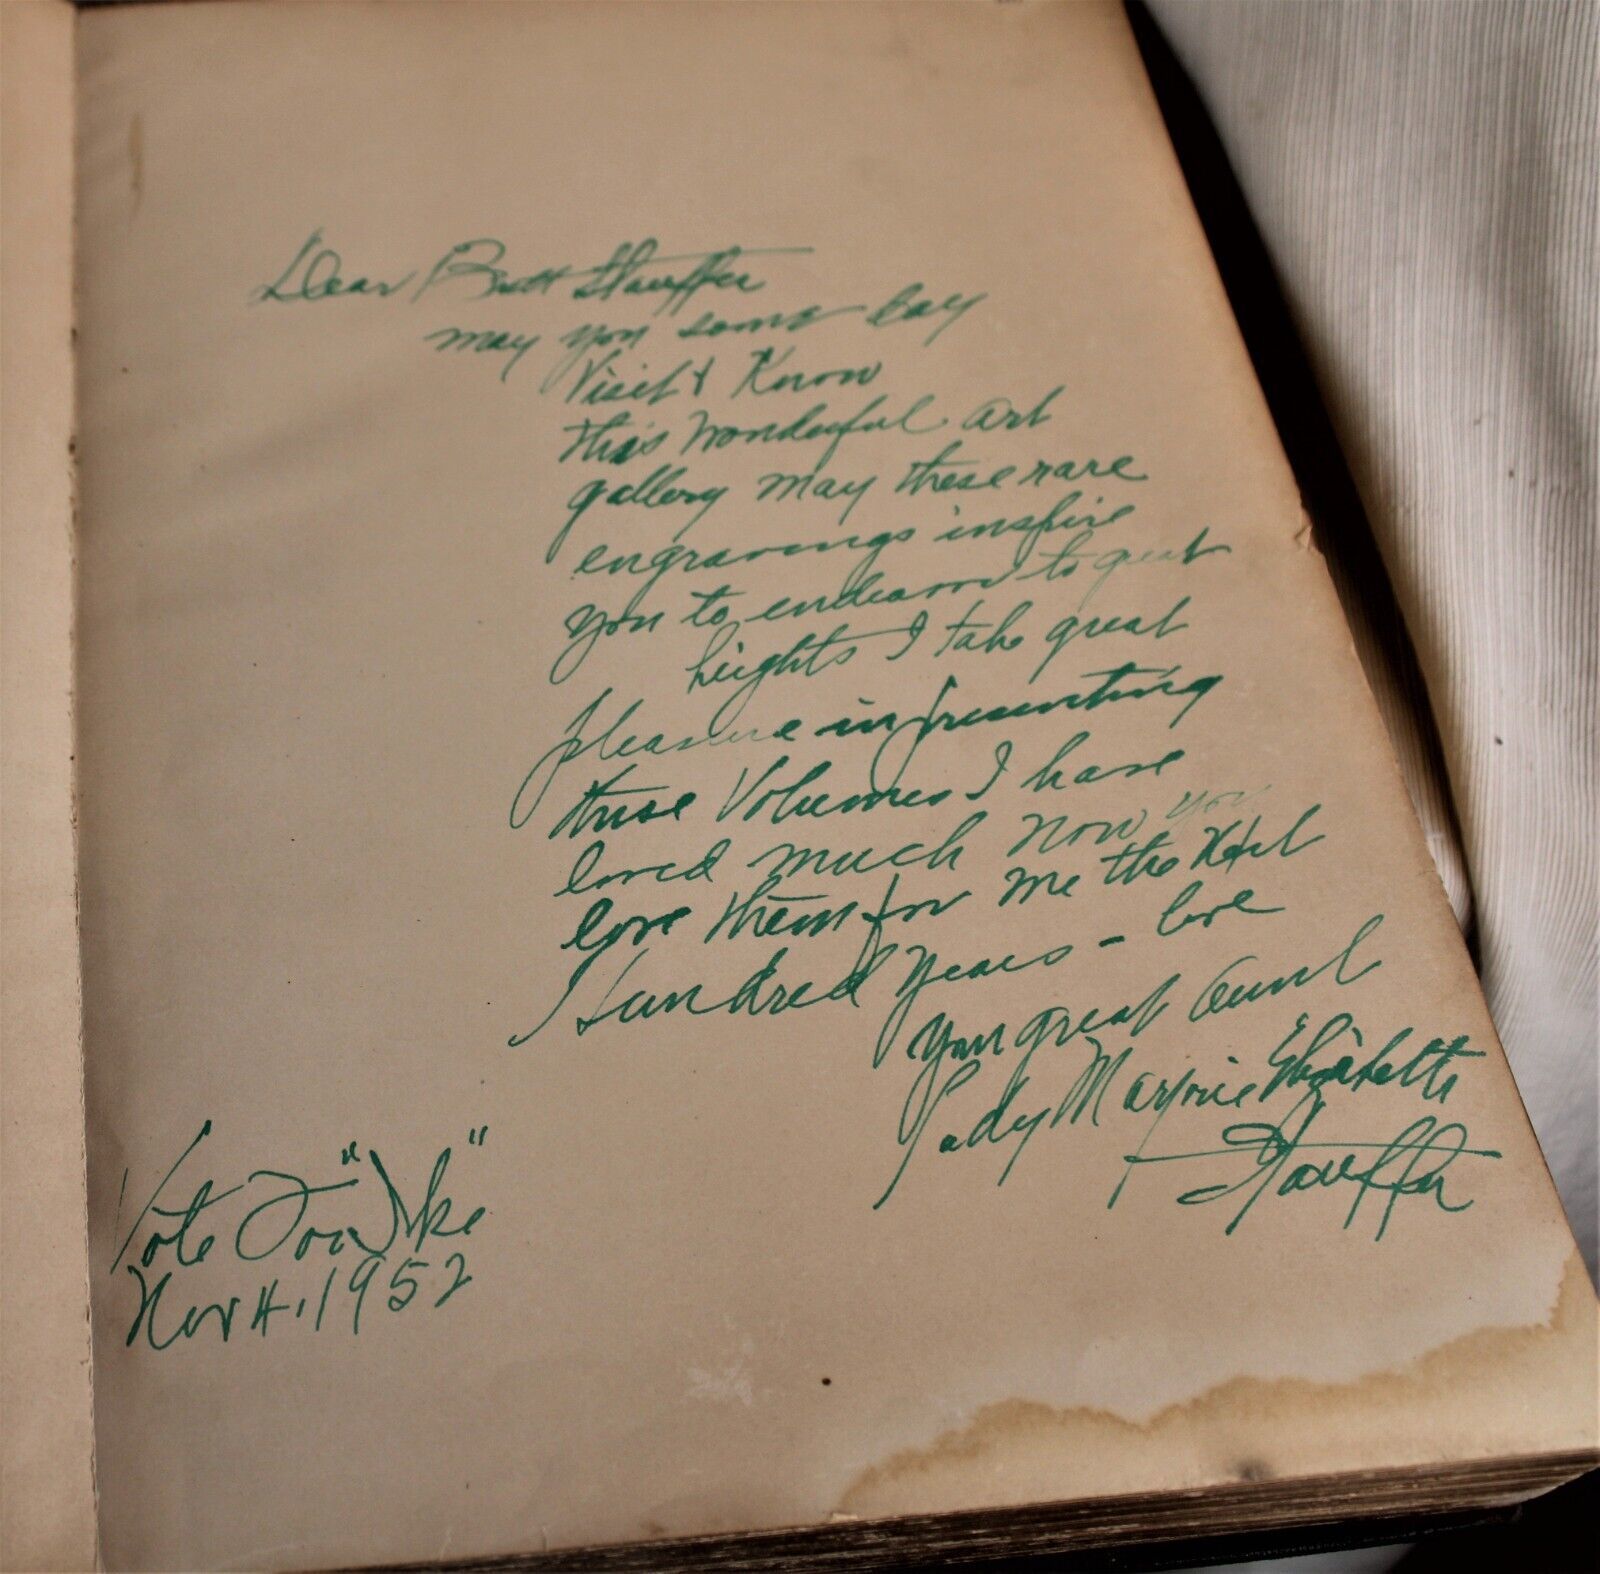 Dear Brett Stauffer
may you some day
Visit & Know
this wonderful art
gallery may these rare
engravings inspire
you to endeavor to great
heights I take great
pleasure in presenting
these Volumes I have
loved much now you
love them for me the next
Hundred years - love
your great aunt
Lady Marjorie Elizabeth
Stauffer
Vote For "Ike"
Nov 4, 1952